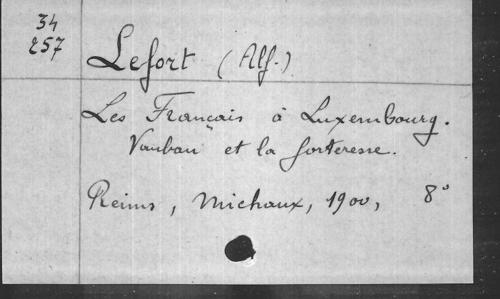 34
257
Lefort (Alf.)
Les Français à Luxembourg.
Vauban et la forteresse.
Reims, Michaux, 1900, 8°